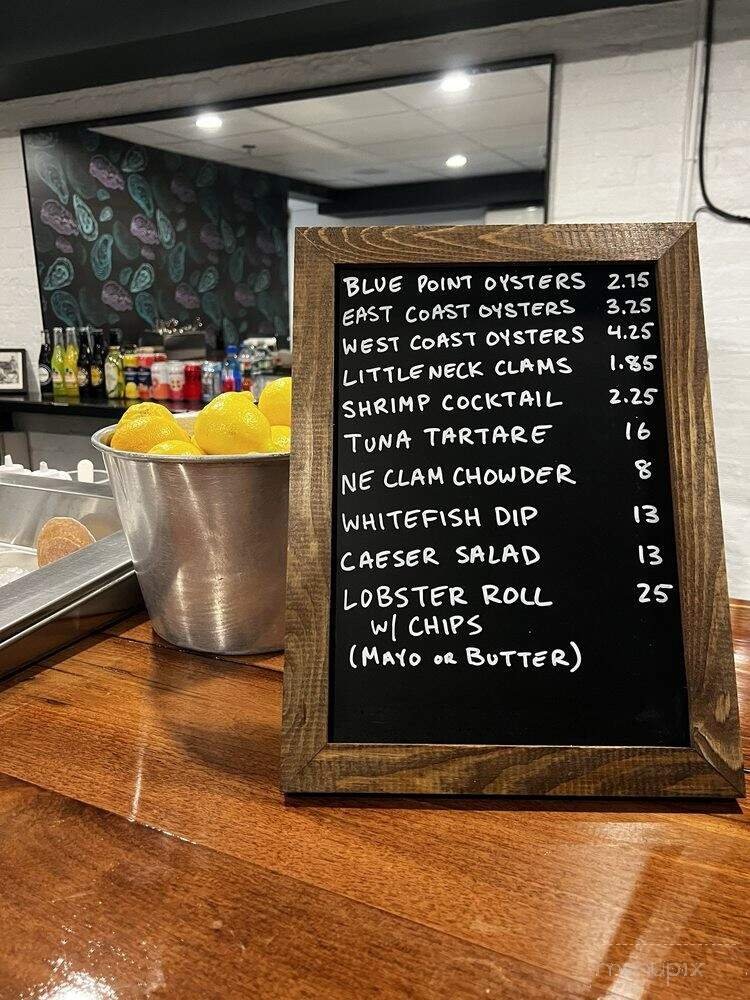 BLUE POINT OYSTERS 2.75
EAST COAST OYSTERS 3.25
WEST COAST OYSTERS 4.25
LITTLENECK CLAMS 1.85
SHRIMP COCKTAIL 2.25
TUNA TARTARE 16
NE CLAM CHOWDER 8
WHITEFISH DIP 13
CAESER SALAD 13
LOBSTER ROLL 25
W/ CHIPS
(MAYO OR BUTTER)
menupix